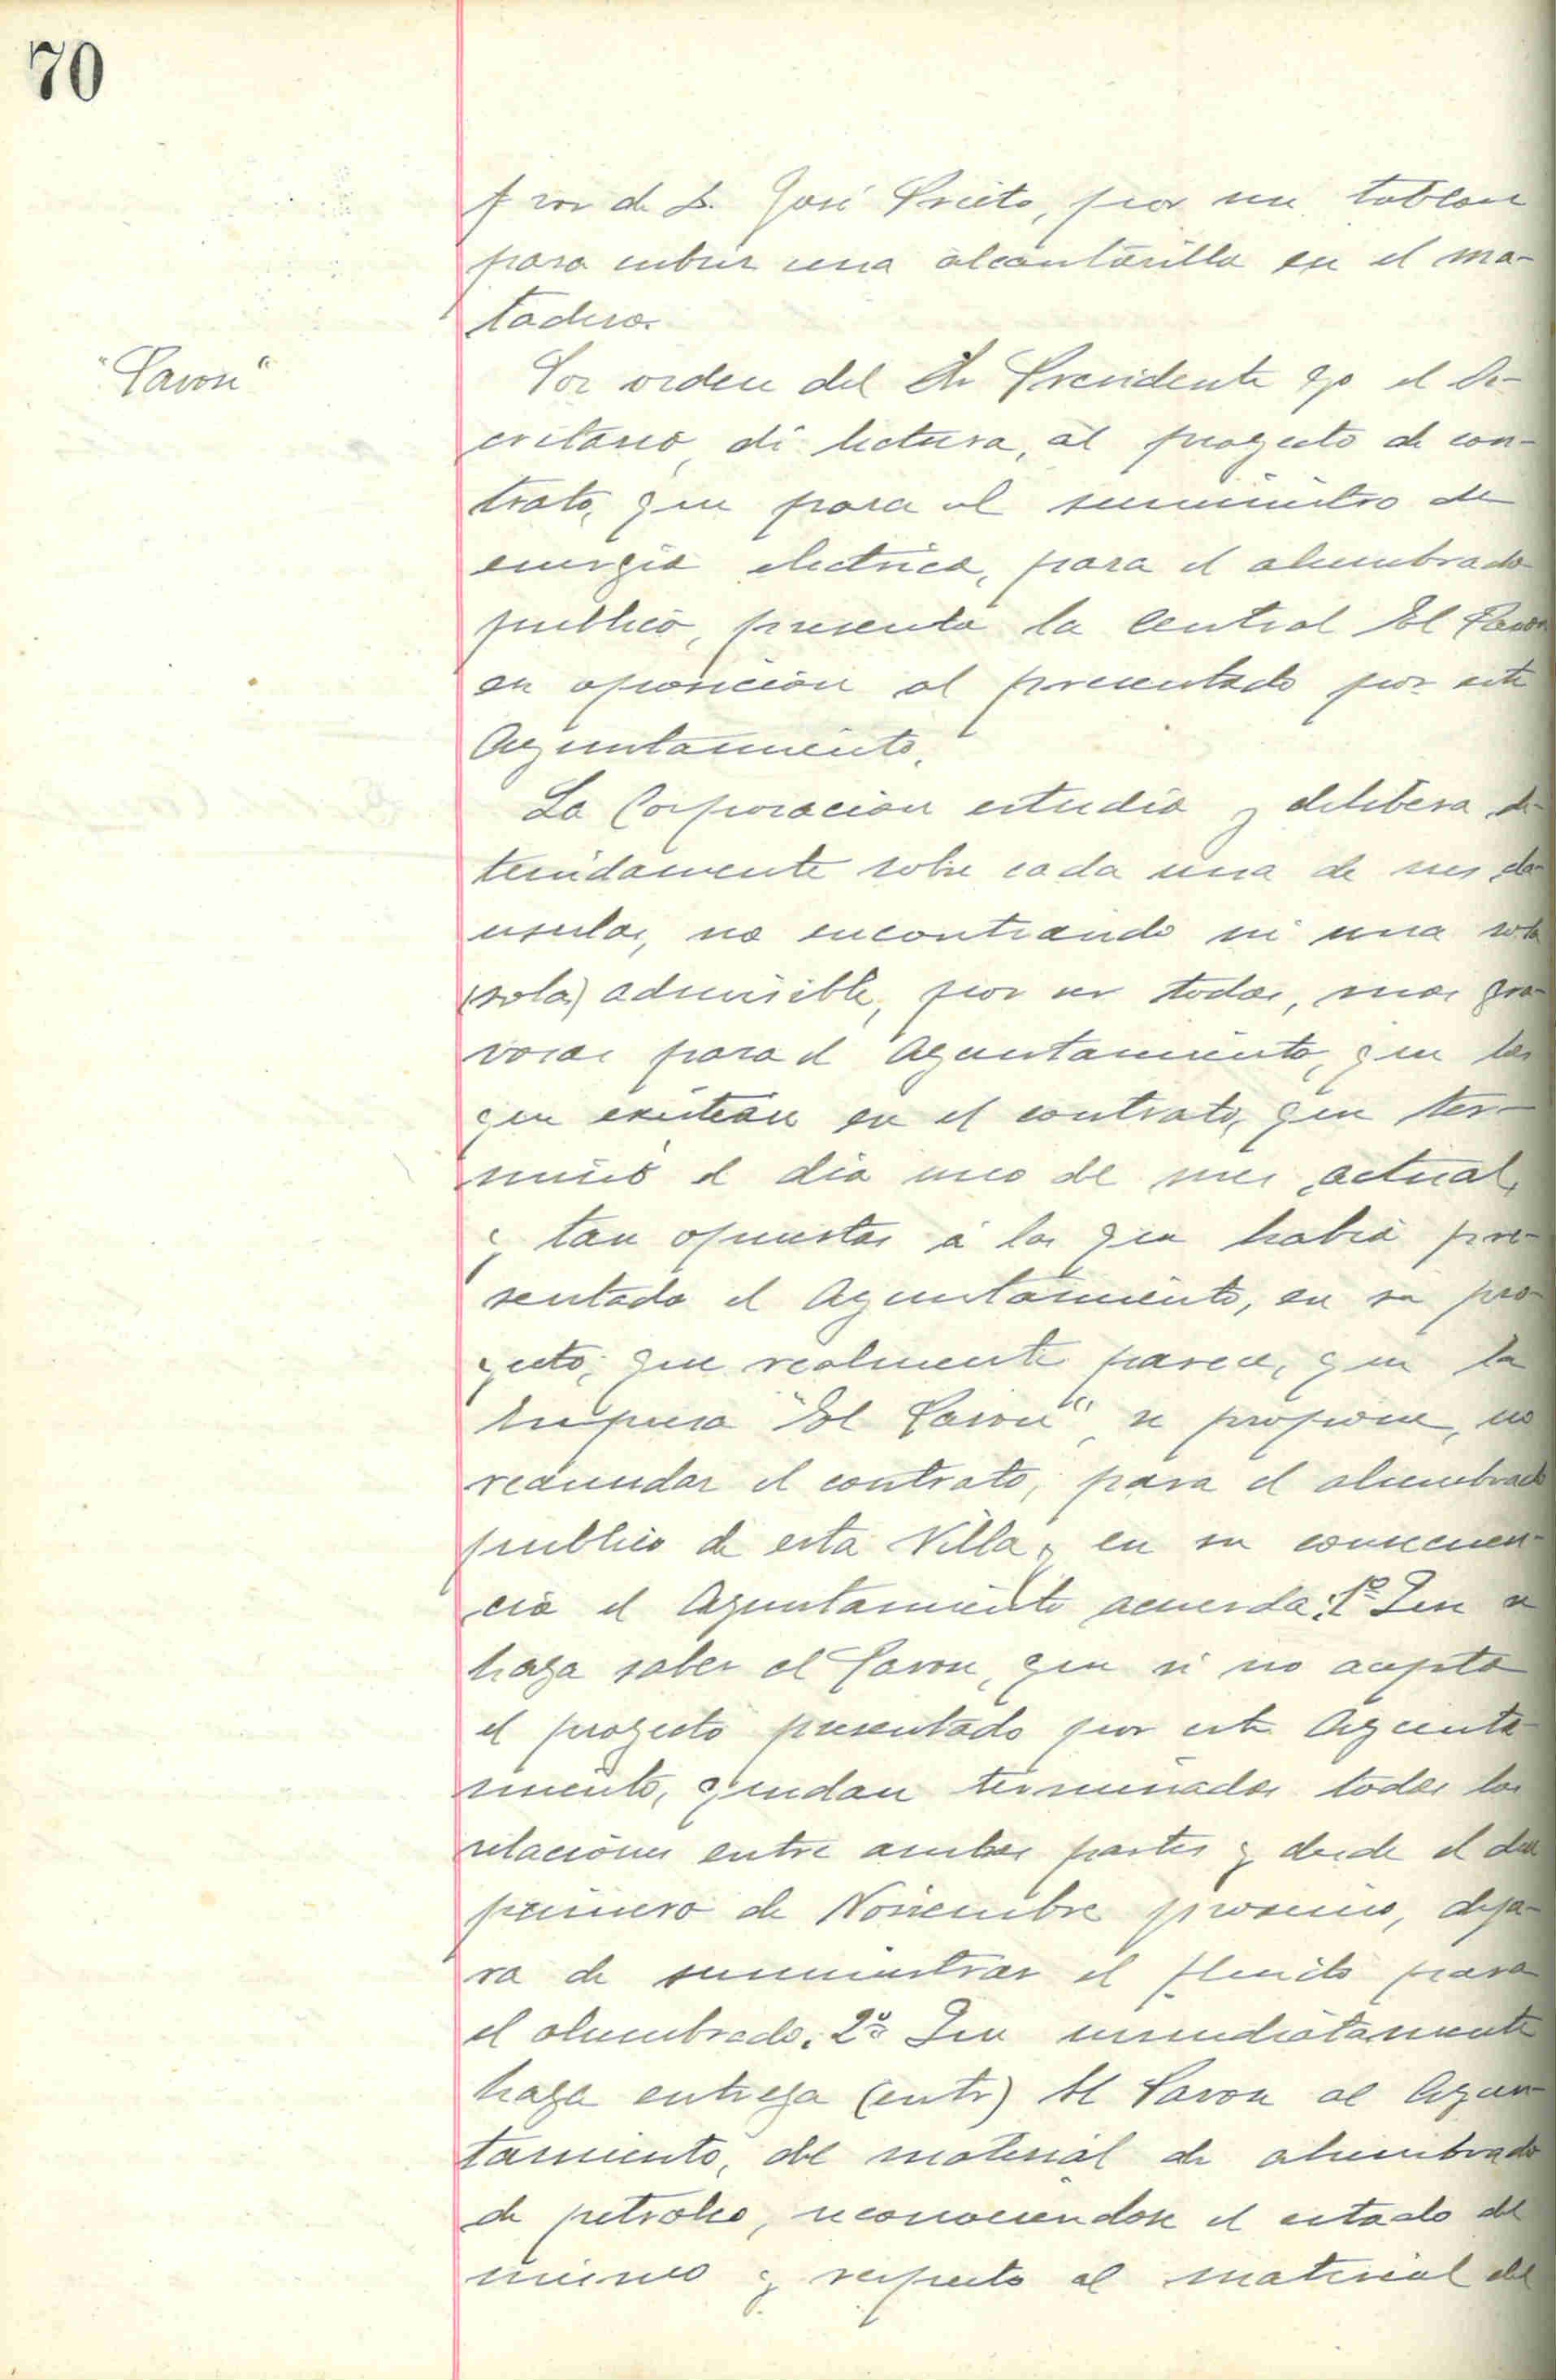 70
f vor de D. José Prieto, por un tablon
para cubrir una alcantarilla en el ma-
tadero.
"Pavon"
Por orden del Sr Presidente yo el Se-
cretario, di lectura, al proyecto de con-
trato, que para el suministro de
energia electrica, para el alumbrado
publico, presenta la Central El Pavon
en oposicion al presentado por este
Ayuntamiento.
La Corporacion estudia y delibera de-
tenidamente sobre cada una de sus cla-
usulas, no encontrando ni una sola
(sola) admisible, por ser todas, mas gra-
vosas para el Ayuntamiento, que las
que existian en el contrato, que ter-
minó el dia uno del mes actual,
y tan opuestas á las que habia pre-
sentado el Ayuntamiento, en su pro-
yecto, que realmente parece, que la
Empresa "El Pavon", se propone, no
reanudar el contrato, para el alumbrado
publico de esta Villa, en su consecuen-
cia el Ayuntamiento acuerda: 1º Que se
haga saber al Pavon, que si no acepta
el proyecto presentado por este Ayunta-
miento, quedan terminadas todas las
relaciones entre ambas partes y desde el dia
primero de Noviembre proximo, deja-
ra de suministrar el fluido para
el alumbrado. 2º Que inmediatamente
haga entrega (entr) El Pavon al Ayun-
tamiento, del material de alumbrado
de petroleo, reconociendose el estado del
mismo y respecto al material del